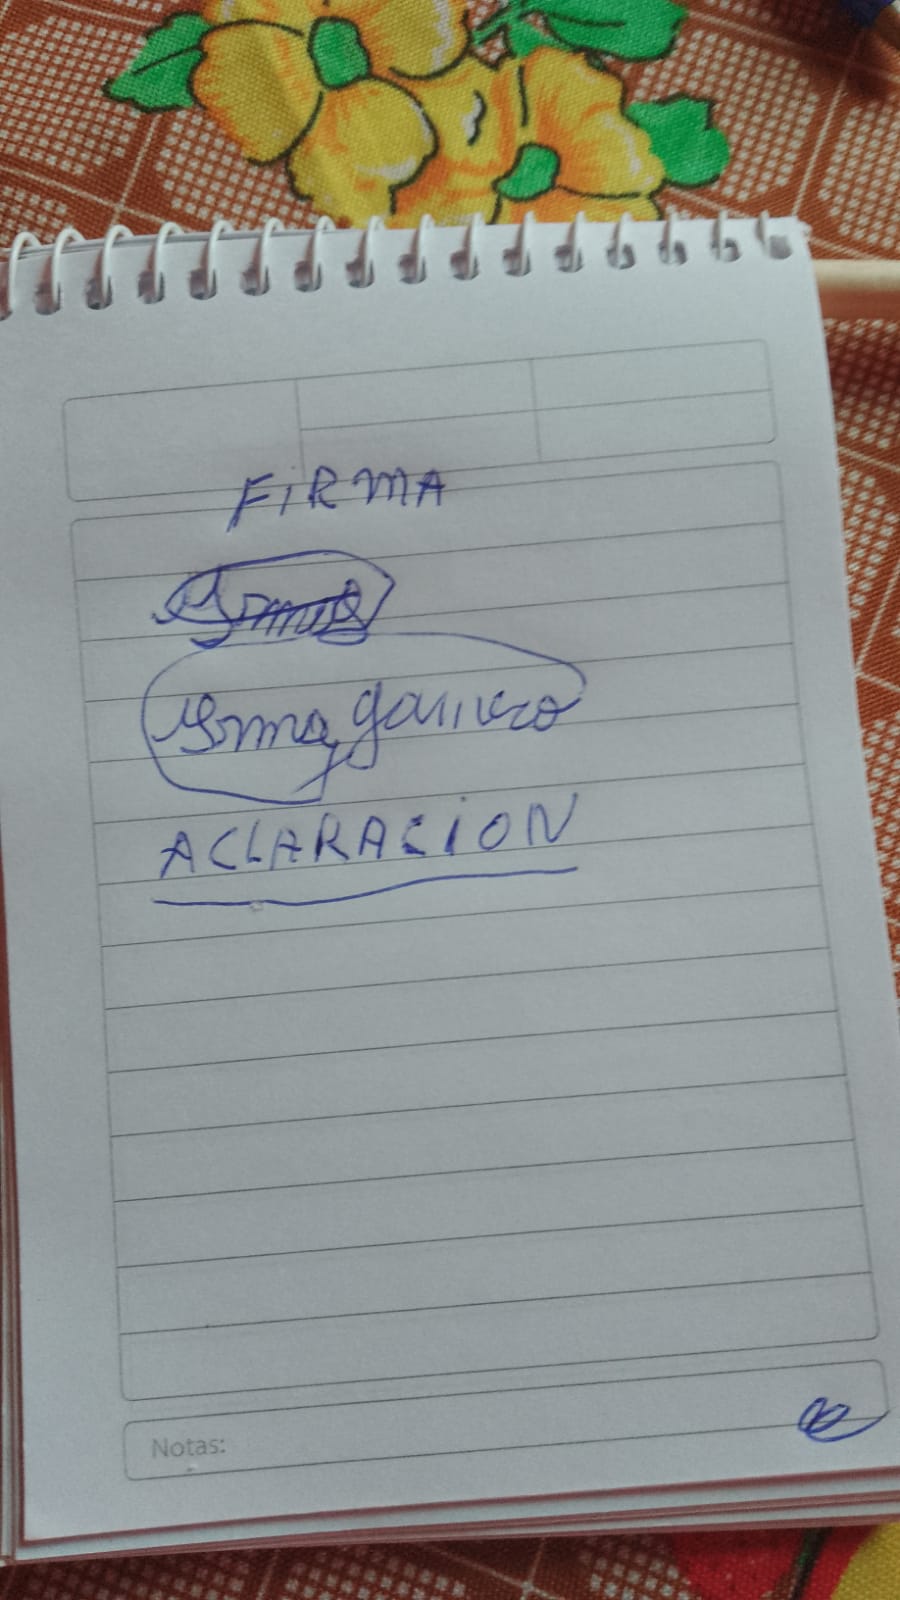 FiRMA
Irma Garnero
ACLARACiON
Notas: